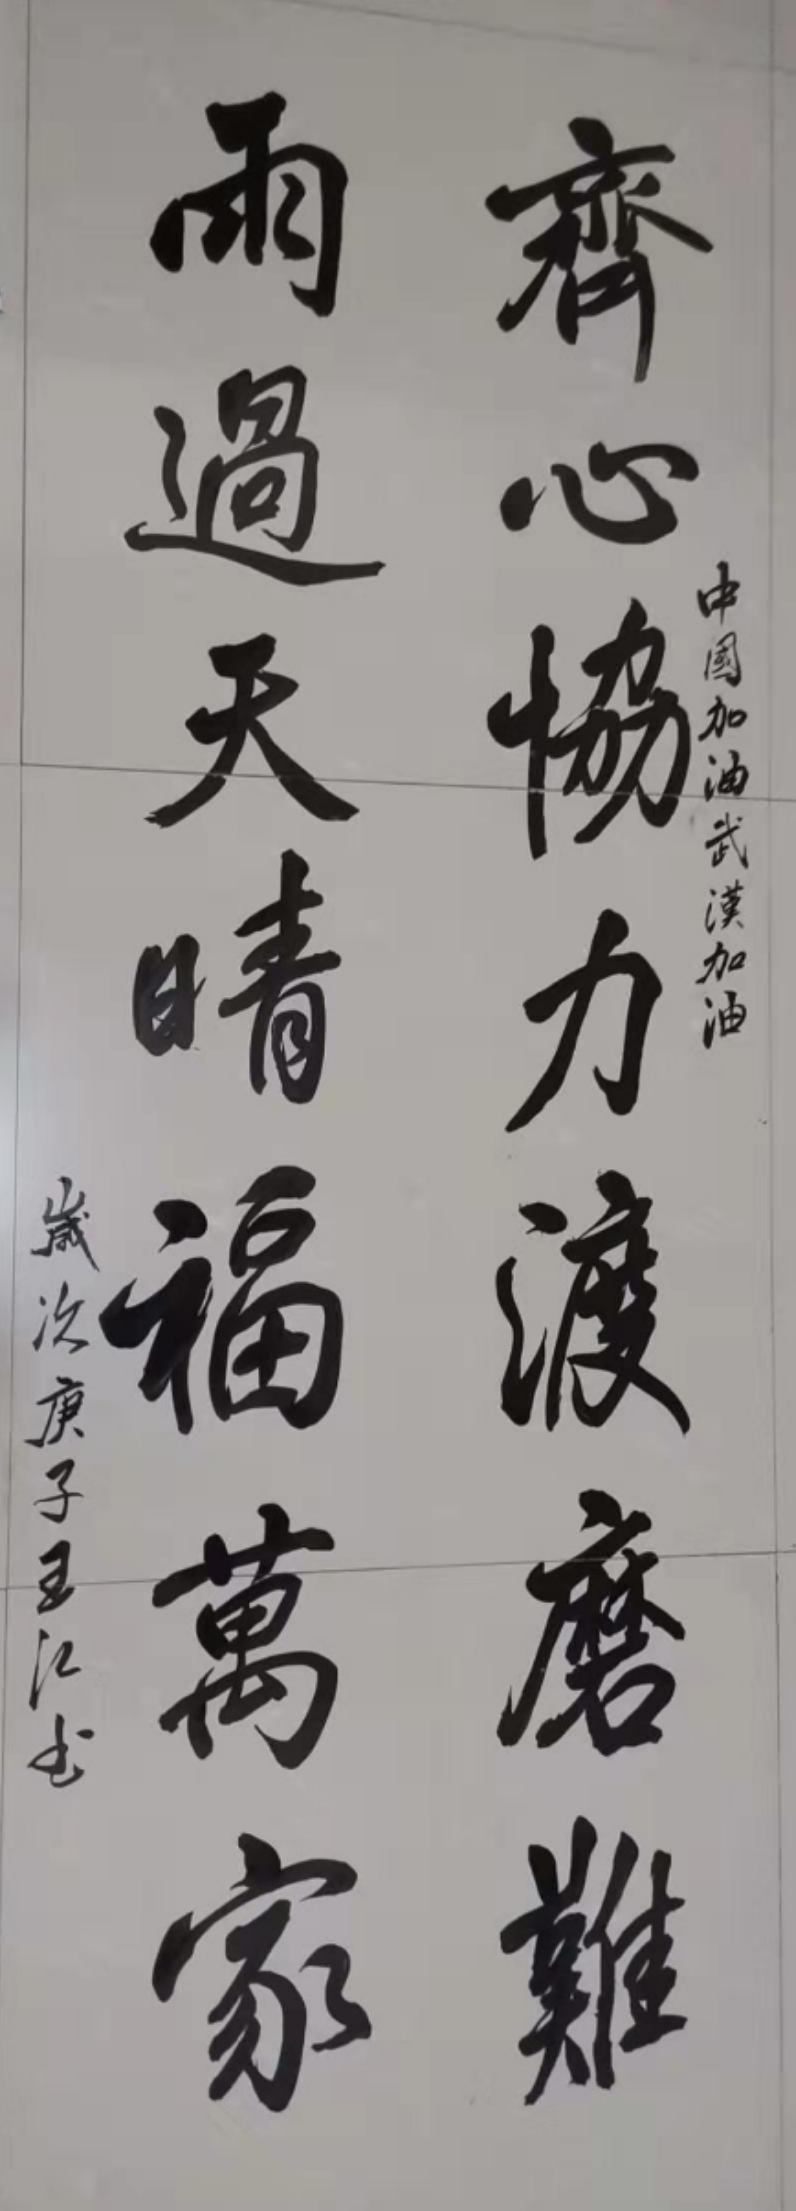 齊心協力渡磨難
中國加油武漢加油
雨過天晴福萬家
歲次庚子王江书